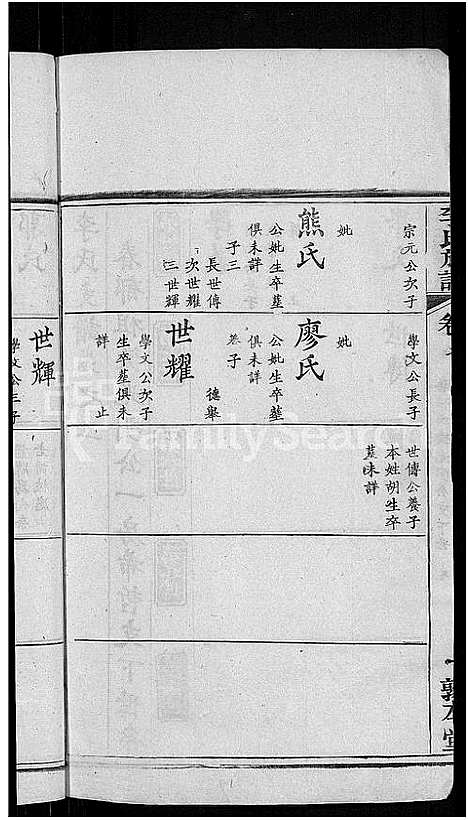 宗元公次子
妣
熊氏
公妣生卒塟
俱未詳
子三
長世傳
次世耀
三世輝
學文公長子
妣
廖氏
公妣生卒塟
俱未詳
養子
德舉
世耀
學文公次子
生卒塟俱未
詳 止
世傳公養子
本姓胡生卒
塟未詳
世輝
學文公三子
FamilySearch